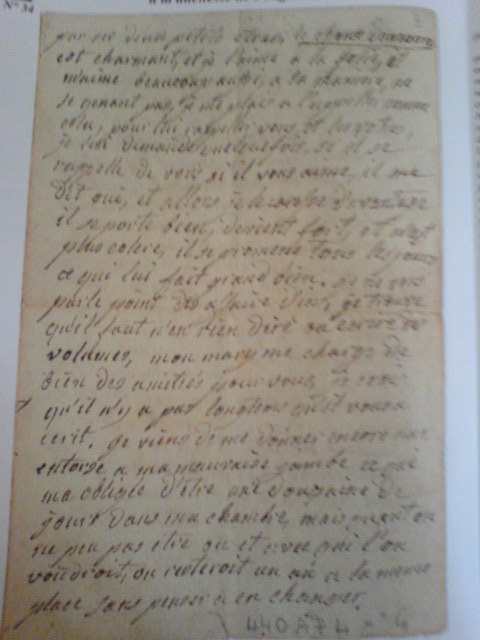 N° 34
par ses deux petits bras, le chou d'amour
est charmant, et je l'aime a la folie, il
m'aime beaucoup aussi, a sa maniere, ne
se genant pas, je me plais a l'appeller comme
cela, pour lui rappeller vous, et les votres,
je lui demande quelquefois, si il se
rappelle de vous si il vous aime, il me
dit oui, et allors je le caresse d'avantage
il se porte bien, devient fort, et n'est
plus colere, il se promene tous les jours
ce qui lui fait grand bien. je ne vous
parle point des affaire d'ici, je trouve
qu'il faut n'en rien dire ou ecrire des
volumes, mon mary me charge de
bien des amitiés pour vous, je crois
qu'il n'y a pas longtems qu'il vous a
ecrit. je viens de me donner encore une
entorse a ma mauvaise jambe ce qui
ma obligée d'être une douzaine de
jours dans ma chambre, mais quant on
ne peu pas etre ou et avec qui l'on
voudroit, on resteroit un an a la meme
place sans penser a en changer.
440 AP 4 n° 4